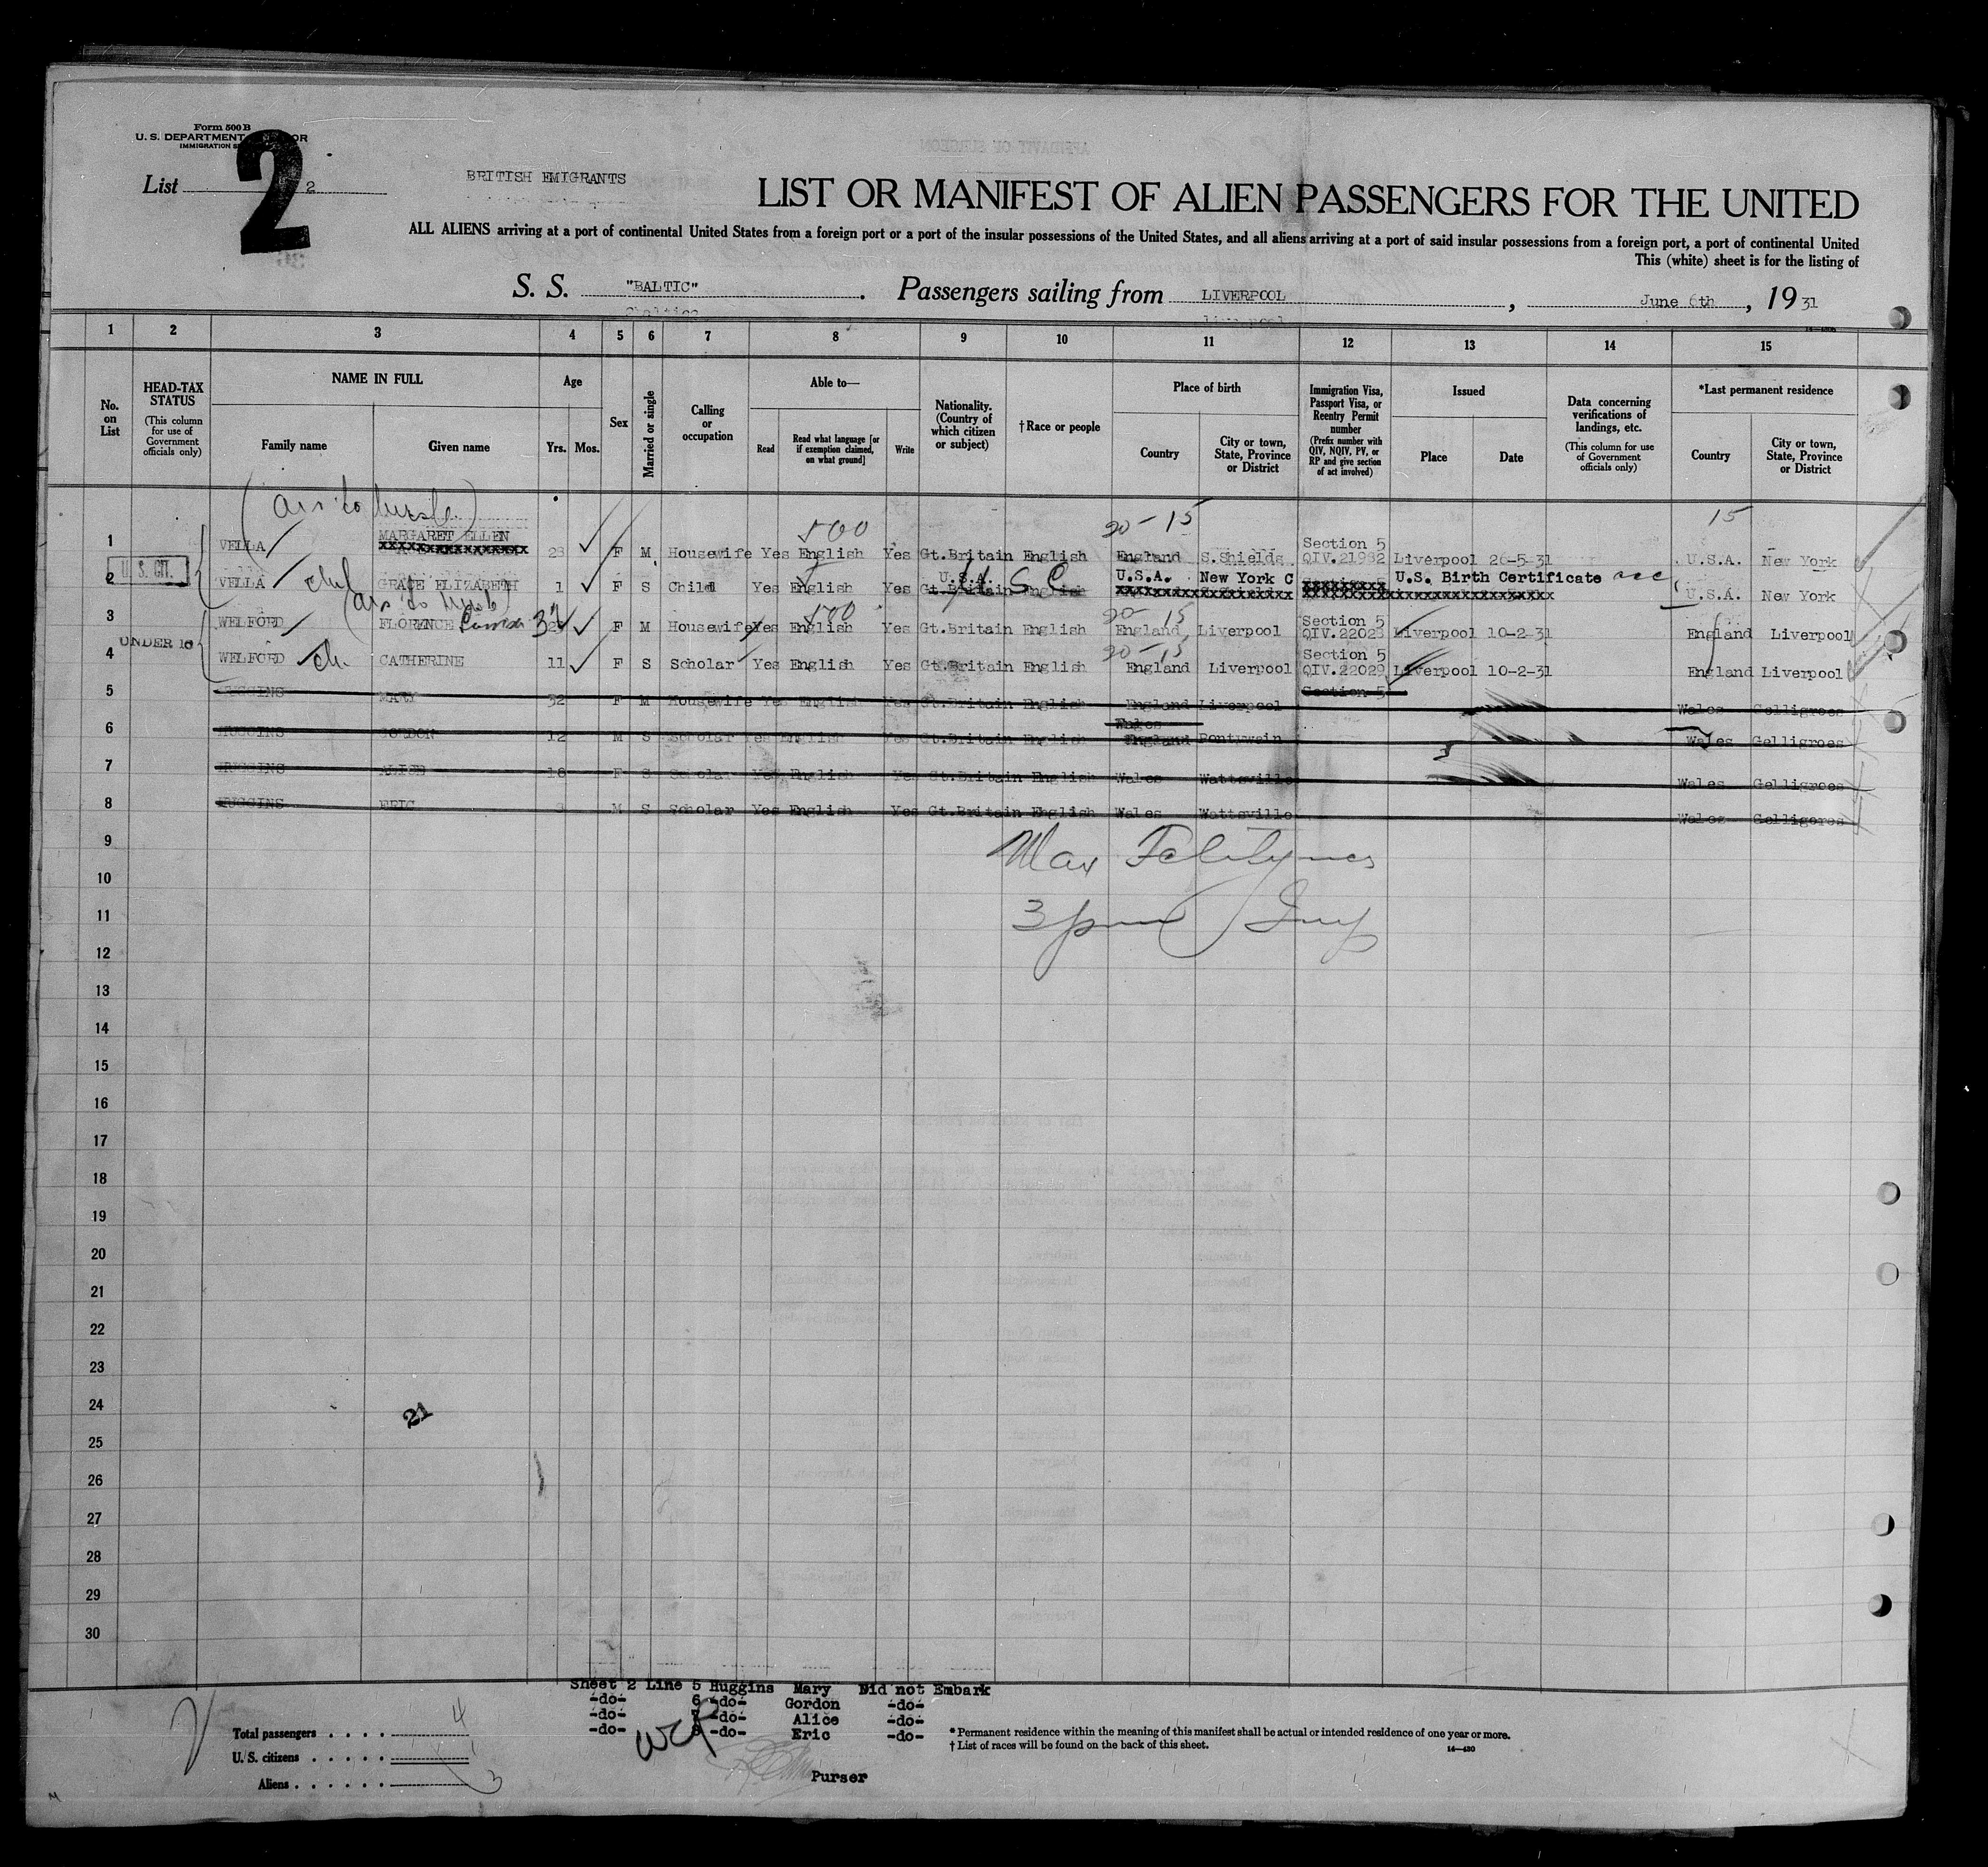 Form 500 B
U. S. DEPARTMENT
IMMIGRATION
2
List 2
BRITISH EMIGRANTS
LIST OR MANIFEST OF ALIEN PASSENGERS FOR THE UNITED
ALL ALIENS arriving at a port of continental United States from a foreign port or a port of the insular possessions of the United States, and all aliens arriving at a port of said insular possessions from a foreign port, a port of continental United
This (white) sheet is for the listing of
S. S. "BALTIC". Passengers sailing from LIVERPOOL, June 6th, 1931
1 2 3 4 5 6 7 8 9 10 11 12 13 14 15
No. on List
HEAD-TAX STATUS
(This column for use of Government officials only)
NAME IN FULL
Family name Given name
Age
Yrs. Mos.
Sex
Married or single
Calling or occupation
Able to—
Read Read what language [or if exemption claimed, on what ground] Write
Nationality. (Country of which citizen or subject)
†Race or people
Place of birth
Country City or town, State, Province or District
Immigration Visa, Passport Visa, or Reentry Permit number
(Prefix number with QIV, NQIV, PV, or RP and give section of act involved)
Issued
Place Date
Data concerning verifications of landings, etc.
(This column for use of Government officials only)
*Last permanent residence
Country City or town, State, Province or District
500 20-15 15
1 VELLA MARGARET ELLEN 28 F M Housewife Yes English Yes Gt.Britain English England S.Shields Section 5 QIV.21982 Liverpool 26-5-31 U.S.A. New York
U. S. CIT.
2 VELLA GRACE ELIZABETH 1 F S Child Yes English Yes U.S.A. Gt.Britain English U.S.A. New York C U.S. Birth Certificate U.S.A. New York
500 20-15
3 WELFORD FLORENCE F M Housewife Yes English Yes Gt.Britain English England Liverpool Section 5 QIV.22028 Liverpool 10-2-31 England Liverpool
UNDER 16
20-15
4 WELFORD ch. CATHERINE 11 F S Scholar Yes English Yes Gt.Britain English England Liverpool Section 5 QIV.22029 Liverpool 10-2-31 England Liverpool
5 HUGGINS MARY 32 F M Housewife Yes English Yes Gt.Britain English England Liverpool Section 5 Wales Gelligroes
6 HUGGINS GORDON 12 M S Scholar Yes English Yes Gt.Britain English Wales England Wales Gelligroes
7 HUGGINS ALICE F S Scholar Yes English Yes Gt.Britain English Wales Wattsville Wales Gelligroes
8 HUGGINS ERIC M S Scholar Yes English Yes Gt.Britain English Wales Wattsville Wales Gelligores
9
Max
10
11
3 pm Insp
12
13
14
15
16
17
18
19
20
21
22
23
24
21
25
26
27
28
29
30
Sheet 2 Line 5 Huggins Mary Did not Embark
-do- 6 -do- Gordon -do-
-do- 7 -do- Alice -do-
-do- 8 -do- Eric -do-
Purser
Total passengers . . . . 4
U. S. citizens . . . . . 1
Aliens . . . . . . 3
* Permanent residence within the meaning of this manifest shall be actual or intended residence of one year or more.
† List of races will be found on the back of this sheet.
14—430